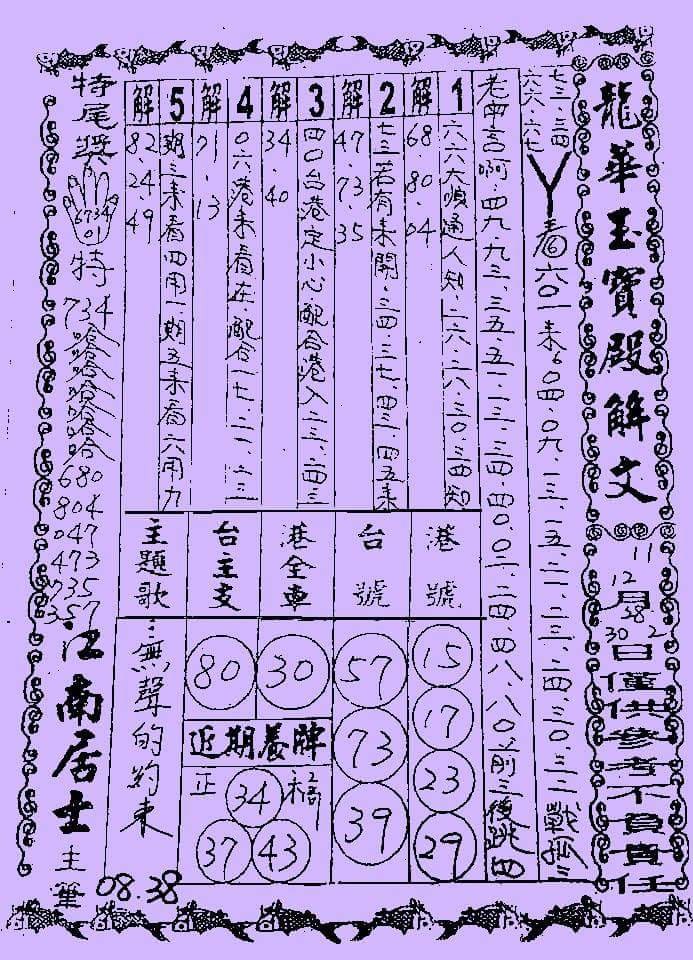 龍華玉寶殿解文
11
12月28
30日2
僅供參考不負責任
七三.二四
六六.六七
丫看六〇一来6〇四.〇九.一三.一五.二一.二三.二四.三〇.三二戰孤三
老曲言啊.四九九三.三五.五一.一三.三四.四〇.〇二.二四.四八.八〇.前三後跳四
1
六六大順通人知.二六.二八.三〇.三四知
解
68.80.04
2
七三若有来開.三四.三七.四三.四五来
解
47.73.35
3
四〇台港定小心.配合港入二三.四三
解
34.40
4
〇六港来看在.配合一七.二一.二三
解
71.13
5
期三来看四用一.期五来看六用九
解
82.24.49
港號
15
17
23
29
台號
57
73
39
港全車
30
台主支
80
近期養牌
正
34
37
43
主題歌
：無聲的約束
特尾獎
6734
01
特
734
哈哈哈哈哈
680
804
047
473
735
357
江南居士主筆
08.38